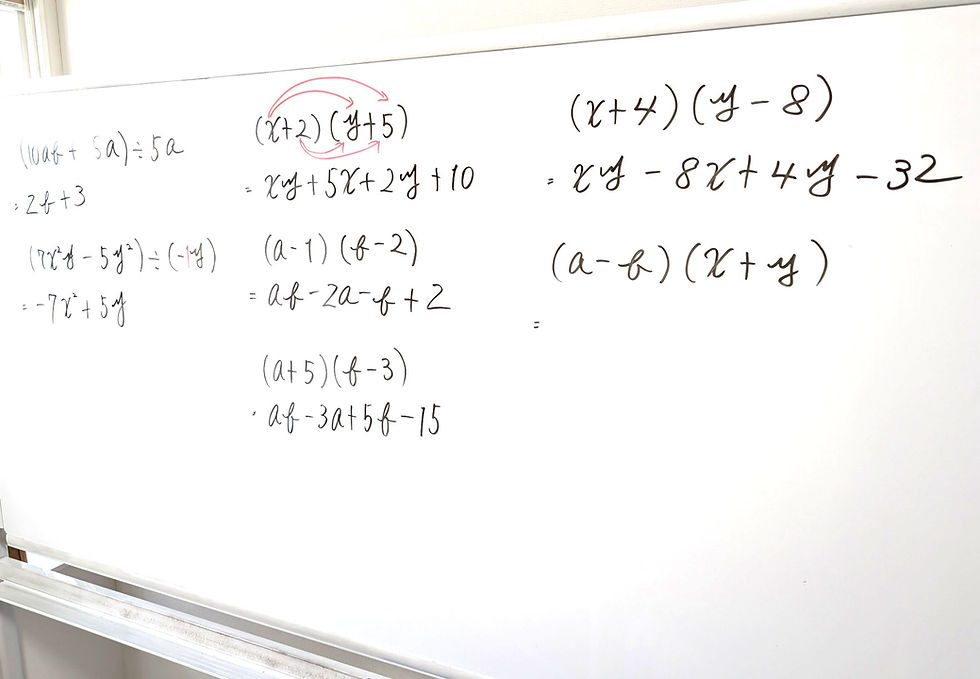 (10ab + 5a)÷5a
= 2b+3
(7x²y - 5y²)÷(-1y)
= -7x² + 5y
(x+2)(y+5)
= xy+5x+2y+10
(a-1)(b-2)
= ab-2a-b+2
(a+5)(b-3)
= ab-3a+5b-15
(x+4)(y-8)
= xy-8x+4y-32
(a-b)(x+y)
=